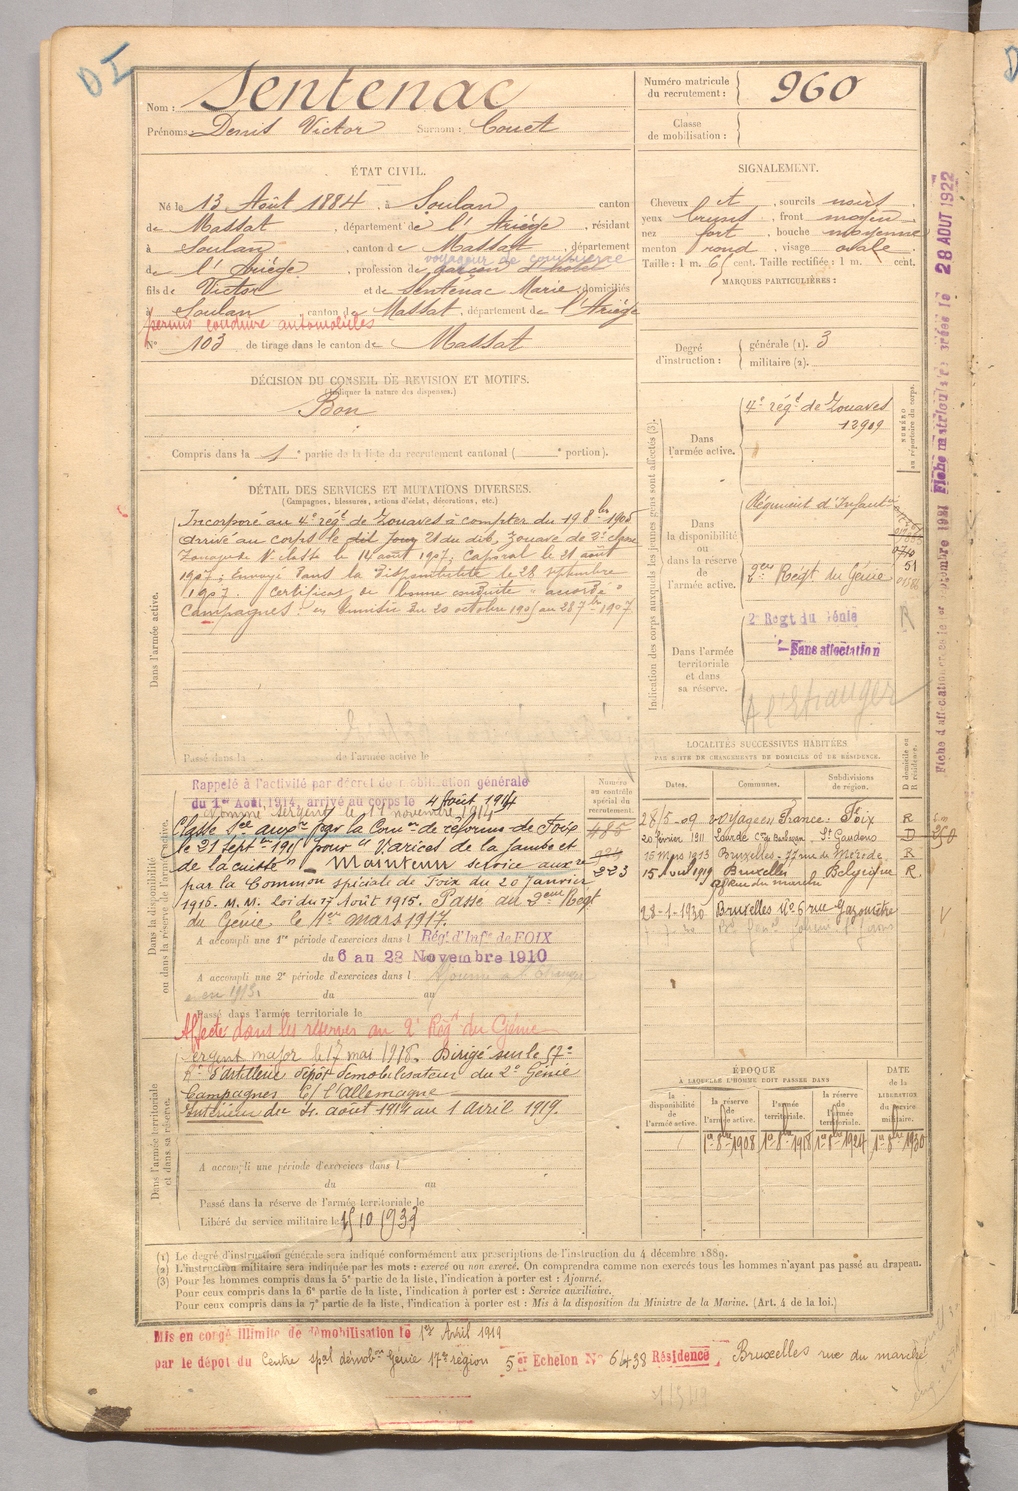 DI
Nom : Sentenac
Prénoms : Denis Victor Surnom : Couet
Numéro matricule
du recrutement : 960
Classe
de mobilisation :
ÉTAT CIVIL.
Né le 13 Août 1884, à Soulan canton
de Massat, département de l'Ariège, résidant
à Soulan, canton de Massat, département
voyageur de commerce
de l'Ariège, profession de garçon d'hôtel
fils de Victor et de Sentenac Marie, domiciliés
à Soulan, canton de Massat, département de l'Ariège
permis conduire automobiles
N° 103 de tirage dans le canton de Massat
SIGNALEMENT.
Cheveux et, sourcils noirs
yeux bruns, front moyen
nez fort, bouche moyenne
menton rond, visage ovale
Taille : 1 m. 65 cent. Taille rectifiée : 1 m. cent.
MARQUES PARTICULIÈRES :
Degré
d'instruction :
générale (1). 3
militaire (2).
DÉCISION DU CONSEIL DE REVISION ET MOTIFS.
(Indiquer la nature des dispenses.)
Bon
Compris dans la 1e partie de la liste du recrutement cantonal ( e portion).
DÉTAIL DES SERVICES ET MUTATIONS DIVERSES.
(Campagnes, blessures, actions d'éclat, décorations, etc.)
Dans l'armée active.
Incorporé au 4e régt de Zouaves à compter du 19 8bre 1905
Arrivé au corps le dit jour 21 du dit, Zouave de 2e classe
Zouave de 1e classe le 14 août 1907; Caporal le 21 août
1907; Envoyé dans la disponibilité le 28 septembre
1907. Certificat de bonne conduite "accordé"
Campagnes : en Tunisie du 20 octobre 1905 au 28 7bre 1907
Passé dans la de l'armée active le
Indication des corps auxquels les jeunes gens sont affectés (3).
Dans
l'armée active.
4e régt de Zouaves
12909
NUMÉRO
au répertoire du corps.
Dans
la disponibilité
ou
dans la réserve
de
l'armée active.
Régiment d'Infanterie
51
2e Régt du Génie
Dans l'armée
territoriale
et dans
sa réserve.
2e Regt du Génie
Sans affectation
A l'étranger
R
LOCALITÉS SUCCESSIVES HABITÉES
PAR SUITE DE CHANGEMENTS DE DOMICILE OU DE RÉSIDENCE.
Dates. Communes. Subdivisions
de région. D domicile ou
R résidence.
28/5-09 voyage en France. Foix R
20 février 1911 St Gaudens D
15 Mars 1913 Bruxelles 77 rue de Mérode R
15 Avril 1919 Bruxelles Belgique R
rue du marché
28-1-1930 Bruxelles No 6 rue Gazomètre
Numéro
au contrôle
spécial du
recrutement.
485
223
Dans la disponibilité
ou dans la réserve de l'armée active.
Rappelé à l'activité par décret de mobilisation générale
du 1er Août 1914, arrivé au corps le 4 Août 1914
Nommé Sergent le 14 novembre 1914
Classé Sce auxre par la Comon de réforme de Foix
le 21 septbre 1915 pour "Varices de la jambe et
de la cuisse". Maintenu service auxre
par la Common spéciale de Foix du 20 Janvier
1916. M.M. Loi du 17 Août 1915. Passé au 2eme Régt
du Génie le 1er mars 1917.
A accompli une 1re période d'exercices dans l Rég. d'Infie de FOIX
du 6 au 28 Novembre 1910
A accompli une 2e période d'exercices dans l
en 1913. du au
Passé dans l'armée territoriale le
Affecté dans les réserves au 2e Régt du Génie
Dans l'armée territoriale
et dans sa réserve.
Sergent major le 17 mai 1918. Dirigé sur le 57e
Rt d'artillerie dépôt démobilisateur du 2e Génie
Campagnes C/ l'Allemagne
Intérieur du 4 août 1914 au 1 avril 1919.
A accompli une période d'exercices dans l
du au
Passé dans la réserve de l'armée territoriale le
Libéré du service militaire le 15 10 1933
ÉPOQUE
À LAQUELLE L'HOMME DOIT PASSER DANS
DATE
de la
LIBÉRATION
du service
militaire.
la
disponibilité
de
l'armée active.
la réserve
de
l'armée active.
l'armée
territoriale.
la réserve
de
l'armée
territoriale.
1er 8bre 1908 1er 8bre 1918 1er 8bre 1924 1er 8bre 1930
(1) Le degré d'instruction générale sera indiqué conformément aux prescriptions de l'instruction du 4 décembre 1889.
(2) L'instruction militaire sera indiquée par les mots : exercé ou non exercé. On comprendra comme non exercés tous les hommes n'ayant pas passé au drapeau.
(3) Pour les hommes compris dans la 5e partie de la liste, l'indication à porter est : Ajourné.
Pour ceux compris dans la 6e partie de la liste, l'indication à porter est : Service auxiliaire.
Pour ceux compris dans la 7e partie de la liste, l'indication à porter est : Mis à la disposition du Ministre de la Marine. (Art. 4 de la loi.)
Mis en congé illimité de démobilisation le 1er Avril 1919
par le dépôt du Centre spal démobon Génie 17e région 5er Echelon N° 6438 Résidence Bruxelles rue du marché
Fiche matricule créée le 28 AOUT 1922